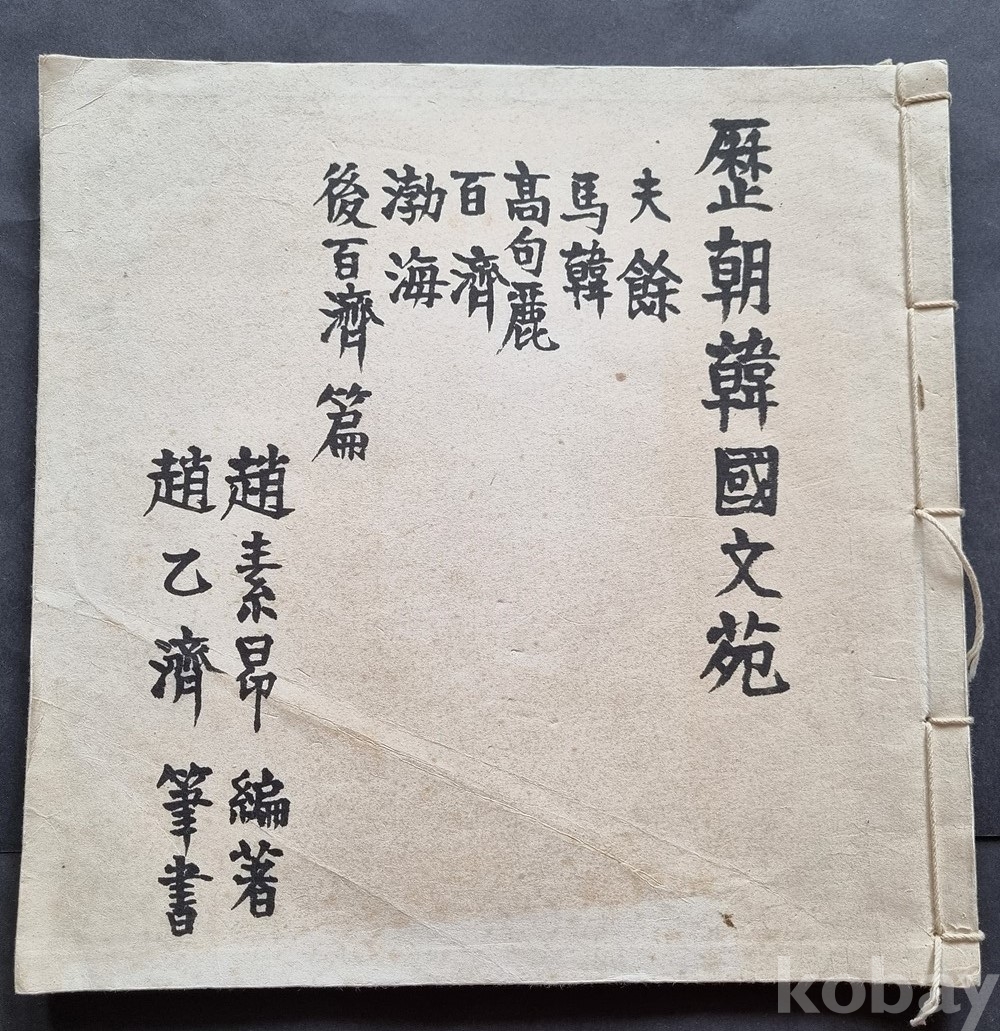 歷朝韓國文苑
夫餘
馬韓
高句麗
百濟
渤海
後百濟篇
趙素昂 編著
趙乙濟 筆書
kobay